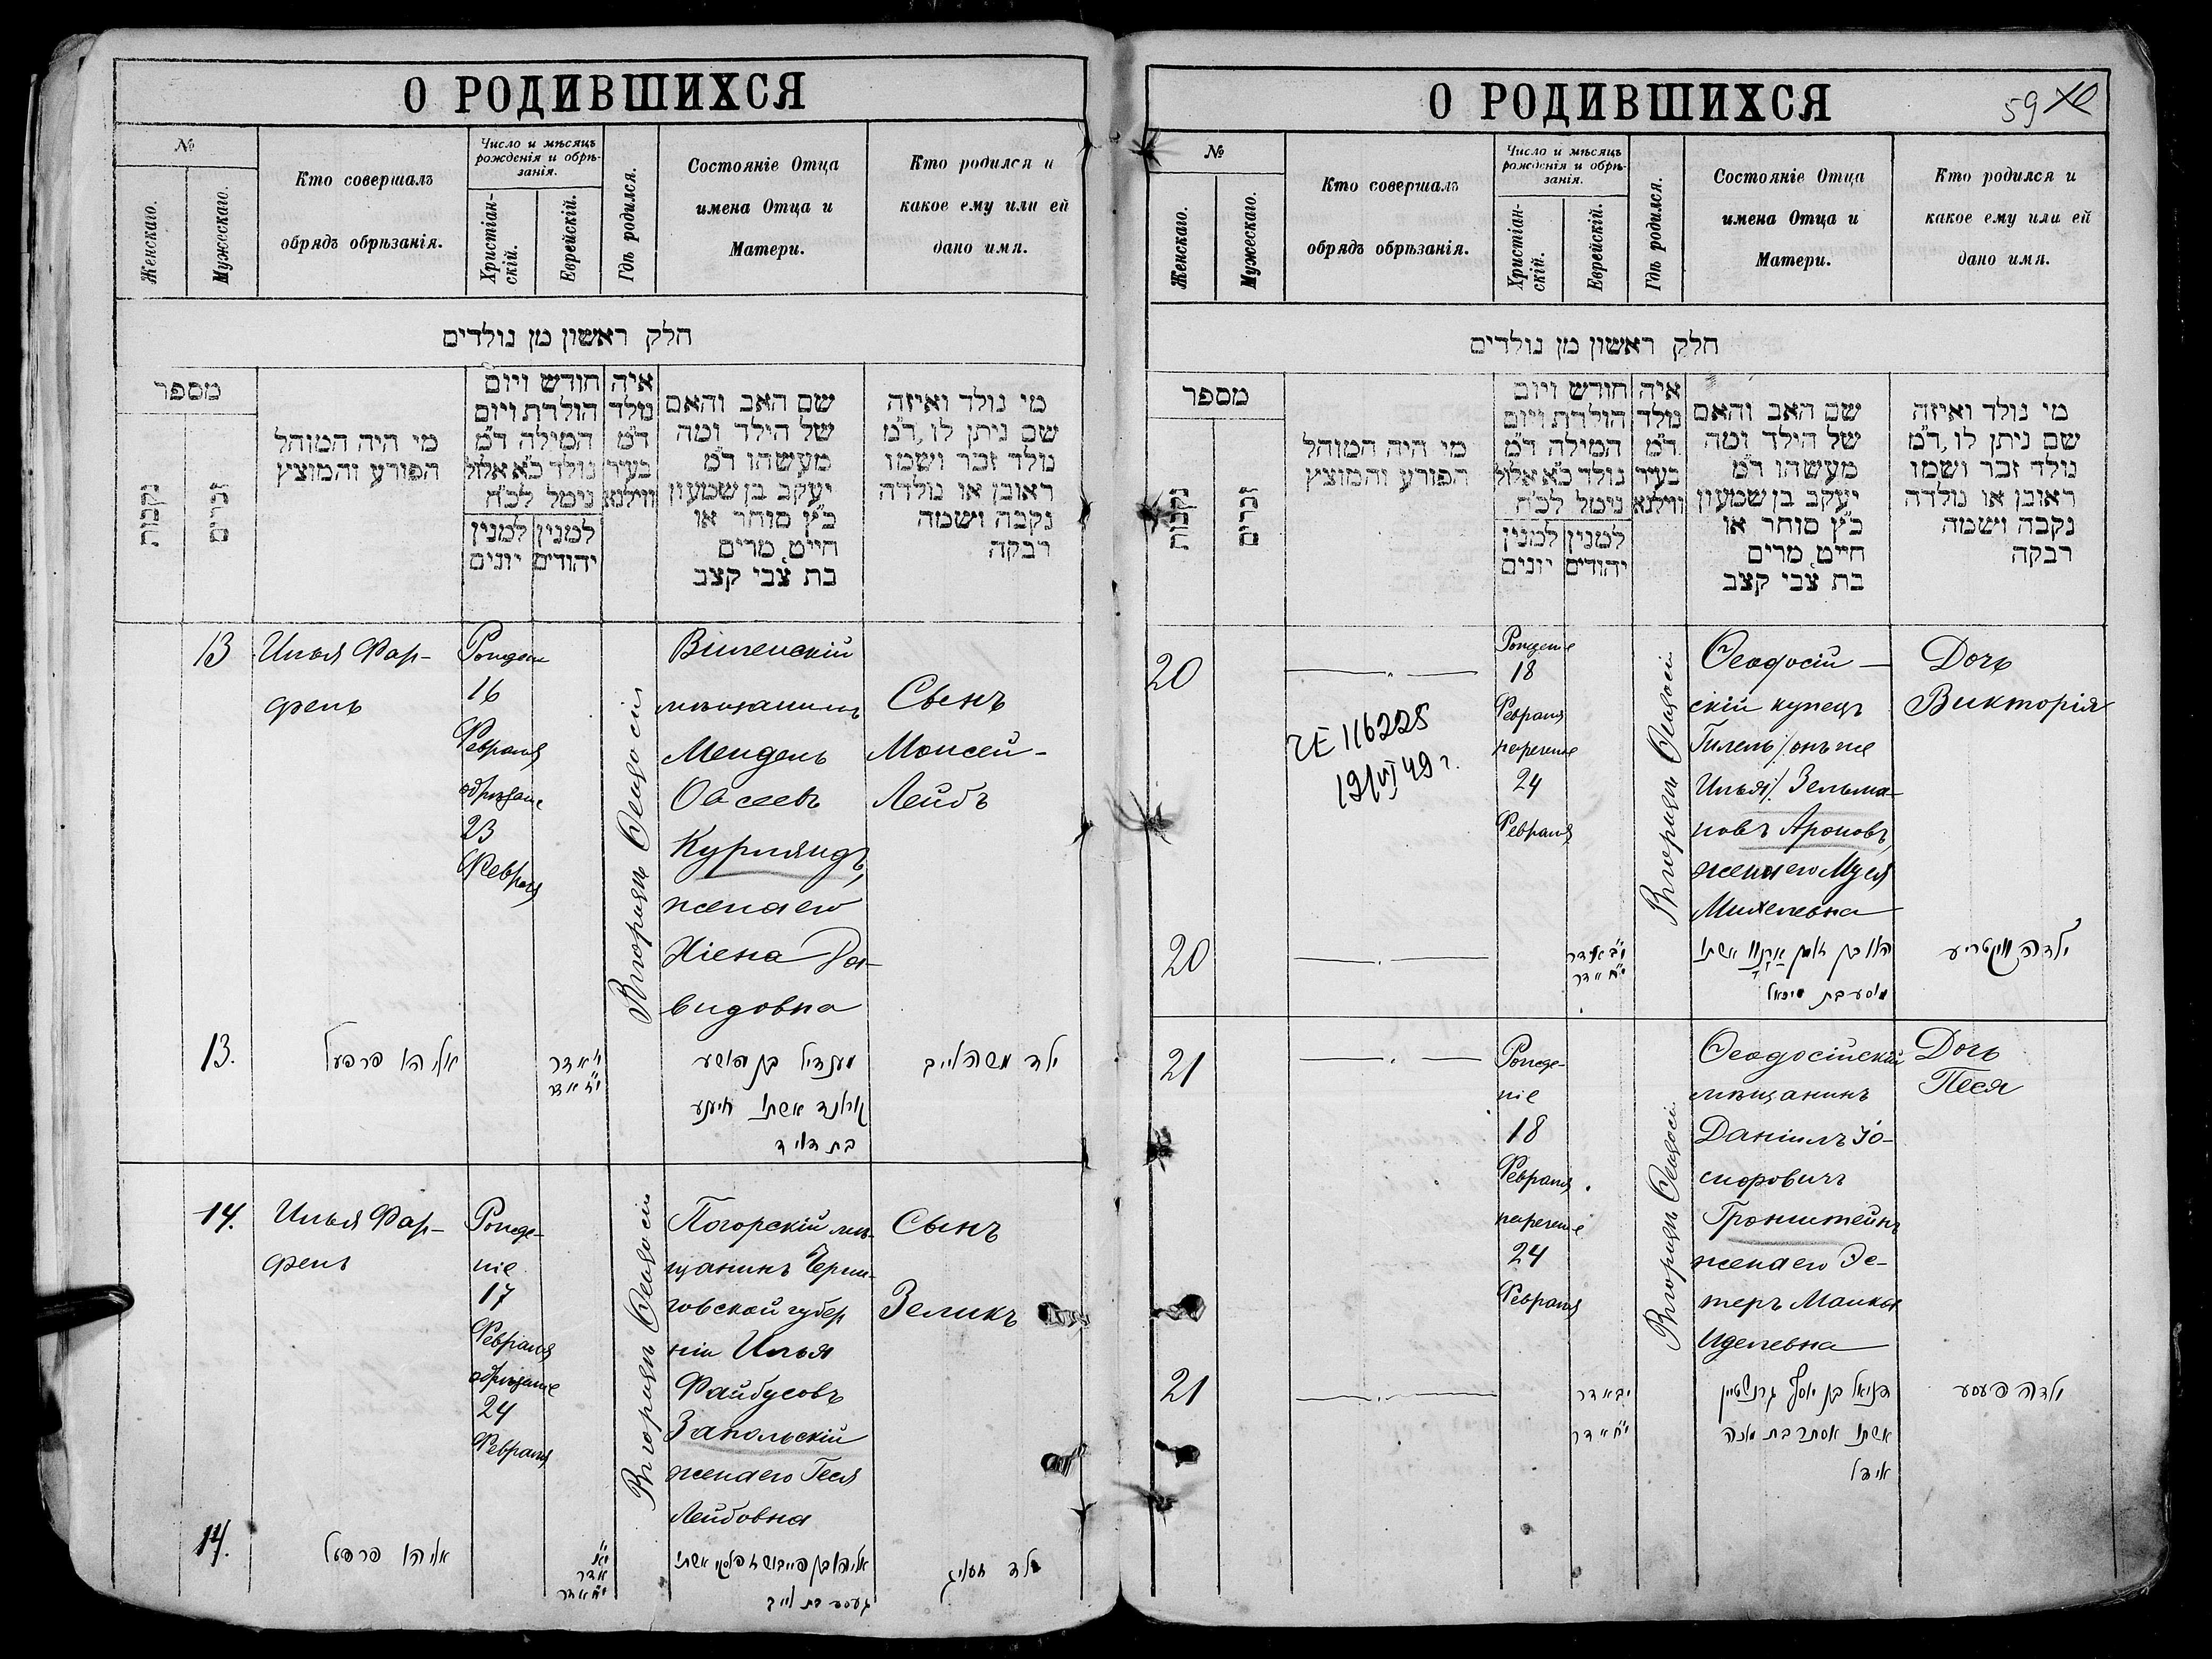 О РОДИВШИХСЯ
№
Женскаго.
Мужескаго.
Кто совершалъ
обрядъ обрѣзанія.
Число и мѣсяцъ
рожденія и обрѣ-
занія.
Христіан-
скій.
Еврейскій.
Гдѣ родился.
Состояніе Отца
имена Отца и
Матери.
Кто родился и
какое ему или ей
дано имя.
חלק ראשון מן נולדים
מספר
נקבות
זכרים
מי היה המוהל
הפורע והמוצץ
חודש ויום
הולדת ויום
המילה ד״מ
נולד כ״א אלול
נימל לכ״ח
למנין
יונים
למנין
יהודים
איה
נולד
ד״מ
בעיר
ווילנא
שם האב והאם
של הילד ומה
מעשהו ד״מ
יעקב בן שמעון
כ״ץ סוחר או
חייט, מרים
בת צבי קצב
מי נולד ואיזה
שם ניתן לו, ד״מ
נולד זכר ושמו
ראובן או נולדה
נקבה ושמה
רבקה
13
Илья Фар-
фель
Рожденіе
16
Февраля
обрѣзаніе
23
Февраля
Въ городѣ Ѳеодосіи
Виленскій
мѣщанинъ
Мендель
Овсеевъ
Курляндъ,
жена его
Хіена Да-
видовна
Сынъ
Моисей-
Лейбъ
13.
אליהו פרפעל
י״א אדר
י״ח אדר
מענדיל בן הושע
קורלאנד אשתו חיענע
בת דוד
ילד משה לייב
14.
Илья Фар-
фель
Рожде-
ніе
17
Февраля
обрѣзаніе
24
Февраля
Въ городѣ Ѳеодосіи
Погорскій мѣ-
щанинъ Черни-
говской губер
ніи Илья
Файбусовъ
Запольскій
жена его Геся
Лейбовна
Сынъ
Зеликъ
14.
אליהו פרפעל
אדר
י״ח אדר
אליהו בן פייבוש זאפאלסקי אשתו
געסע בת לייב
ילד זעליג
О РОДИВШИХСЯ
59
№
Женскаго.
Мужескаго.
Кто совершалъ
обрядъ обрѣзанія.
Число и мѣсяцъ
рожденія и обрѣ-
занія.
Христіан-
скій.
Еврейскій.
Гдѣ родился.
Состояніе Отца
имена Отца и
Матери.
Кто родился и
какое ему или ей
дано имя.
חלק ראשון מן נולדים
מספר
נקבות
זכרים
מי היה המוהל
הפורע והמוצץ
חודש ויום
הולדת ויום
המילה ד״מ
נולד כ״א אלול
נימל לכ״ח
למנין
יונים
למנין
יהודים
איה
נולד
ד״מ
בעיר
ווילנא
שם האב והאם
של הילד ומה
מעשהו ד״מ
יעקב בן שמעון
כ״ץ סוחר או
חייט, מרים
בת צבי קצב
מי נולד ואיזה
שם ניתן לו, ד״מ
נולד זכר ושמו
ראובן או נולדה
נקבה ושמה
רבקה
20
Рожденіе
18
Февраля
нареченіе
24
Февраля
ЧЕ 116225
19/VI 49 г.
Въ городѣ Ѳеодосіи
Ѳеодосій-
скій купецъ
Гилель /онъ же
Илья/ Зельма-
новъ Ароновъ,
жена его Муся
Михелевна
Дочь
Викторія
20
י״ב אדר
י״ח אדר
אשתו
מוסע בת מיכאל
ילדה וויקטריע
21
Рожде-
ніе
18
Февраля
нареченіе
24
Февраля
Въ городѣ Ѳеодосіи
Ѳеодосійскій
мѣщанинъ
Даніилъ Іо-
сифовичъ
Гронштейнъ
жена его Эс-
теръ Малка
Иделевна
Дочь
Песя
21
י״ב אדר
י״ח אדר
דניאל בן יוסף גרנשטיין
אשתו אסתר בת
אידל
ילדה פעסע